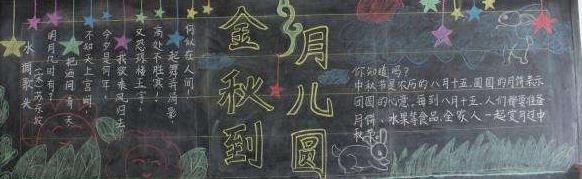 水调歌头
(宋)苏东坡
明月几时有?
把酒问青天
不知天上宫阙
今夕是何年
我欲乘风归去
又恐琼楼玉宇
高处不胜寒
起舞弄清影
何似在人间!
金秋到
月儿圆
你知道吗?
中秋节是农历的八月十五.圆圆的月饼表示
团圆的心意.每到八月十五.人们都要准备
月饼、水果等食品.全家人一起赏月过中
秋